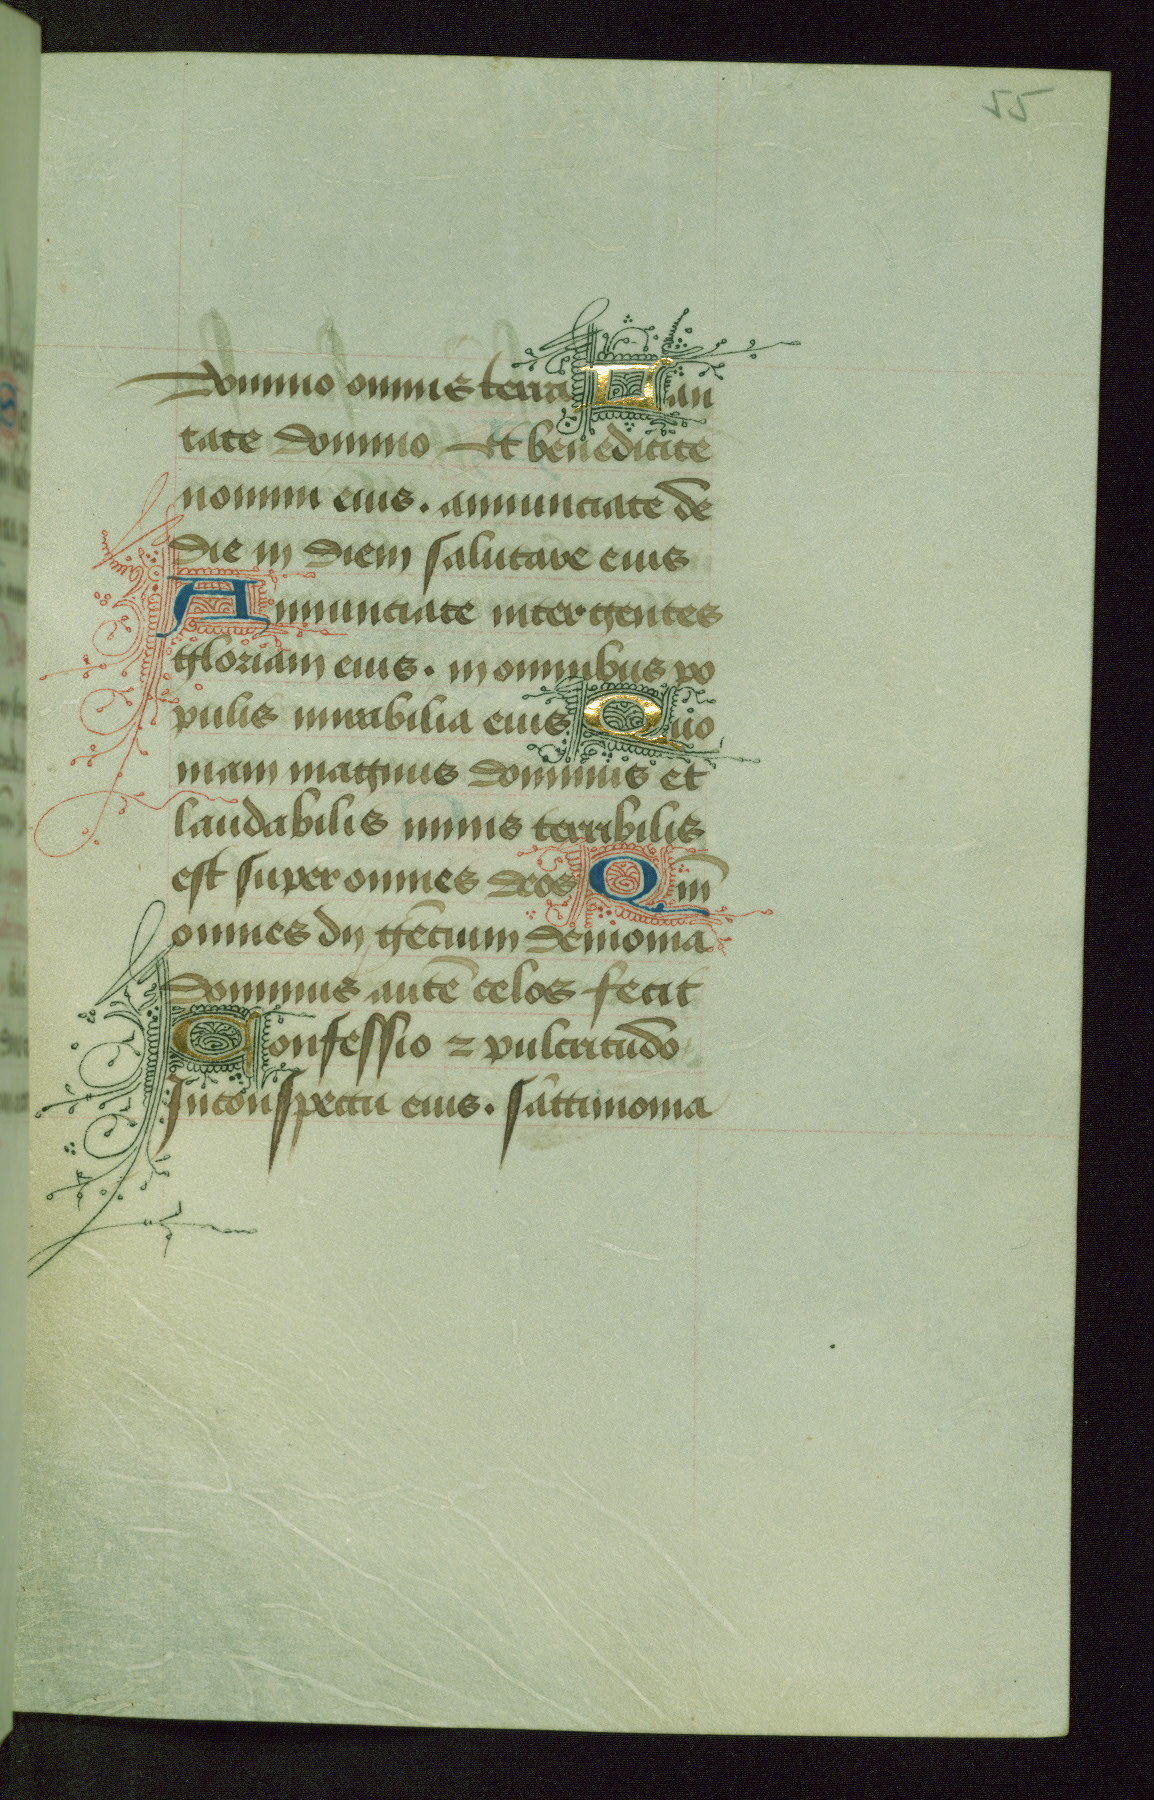 55
Domino omnis terra Can
tate domino et benedicite
nomini eius. annunciate de
die in diem salutare eius
Annunciate inter gentes
gloriam eius. in omnibus po
pulis mirabilia eius Quo
niam magnus dominus et
laudabilis nimis terribilis
est super omnes deos Qm̄
omnes dii gēcium demonia
dominus autē celos fecit
Confessio ⁊ pulcritudo
In conspectu eius. sāctimonia